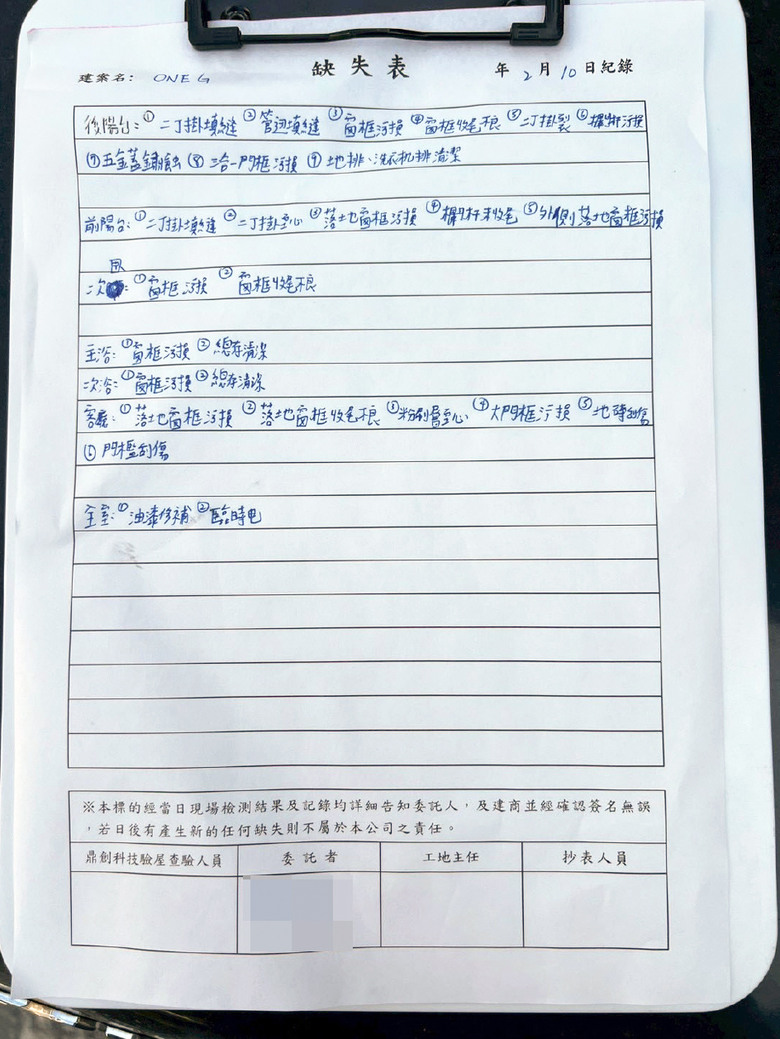 缺失表
建案名: ONE G 年 2 月 10 日紀錄
後陽台:① 二丁掛填縫 ② 管边填縫 ③ 窗框污損 ④ 窗框收尾不良 ⑤ 二丁掛裂 ⑥ 污損
⑦ 五金蓋鏽蝕 ⑧ 三合一門框污損 ⑨ 地排、洗衣机排清潔
前陽台:① 二丁掛填縫 ② 二丁掛空心 ③ 落土地窗框污損 ④ 欄杆未收尾 ⑤ 外側落地窗框污損
次臥:① 窗框污損 ② 窗框收尾不良
主浴:① 窗框污損 ② 總存清潔
次浴:① 窗框污損 ② 總存清潔
客廳:① 落地窗框污損 ② 落地窗框收尾不良 ③ 粉刷層空心 ④ 大門框污損 ⑤ 地磚刮傷
⑥ 門檻刮傷
全室:① 油漆修補 ② 臨時电
※本標的經當日現場檢測結果及記錄均詳細告知委託人,及建商並經確認簽名無誤
,若日後有產生新的任何缺失則不屬於本公司之責任。
鼎創科技驗屋查驗人員 委託者 工地主任 抄表人員